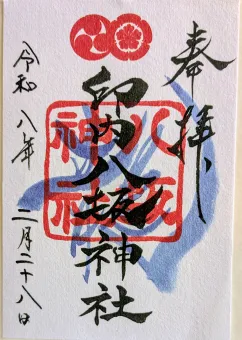 奉拝
印内八坂神社
八坂
神社
令和八年
二月二十八日